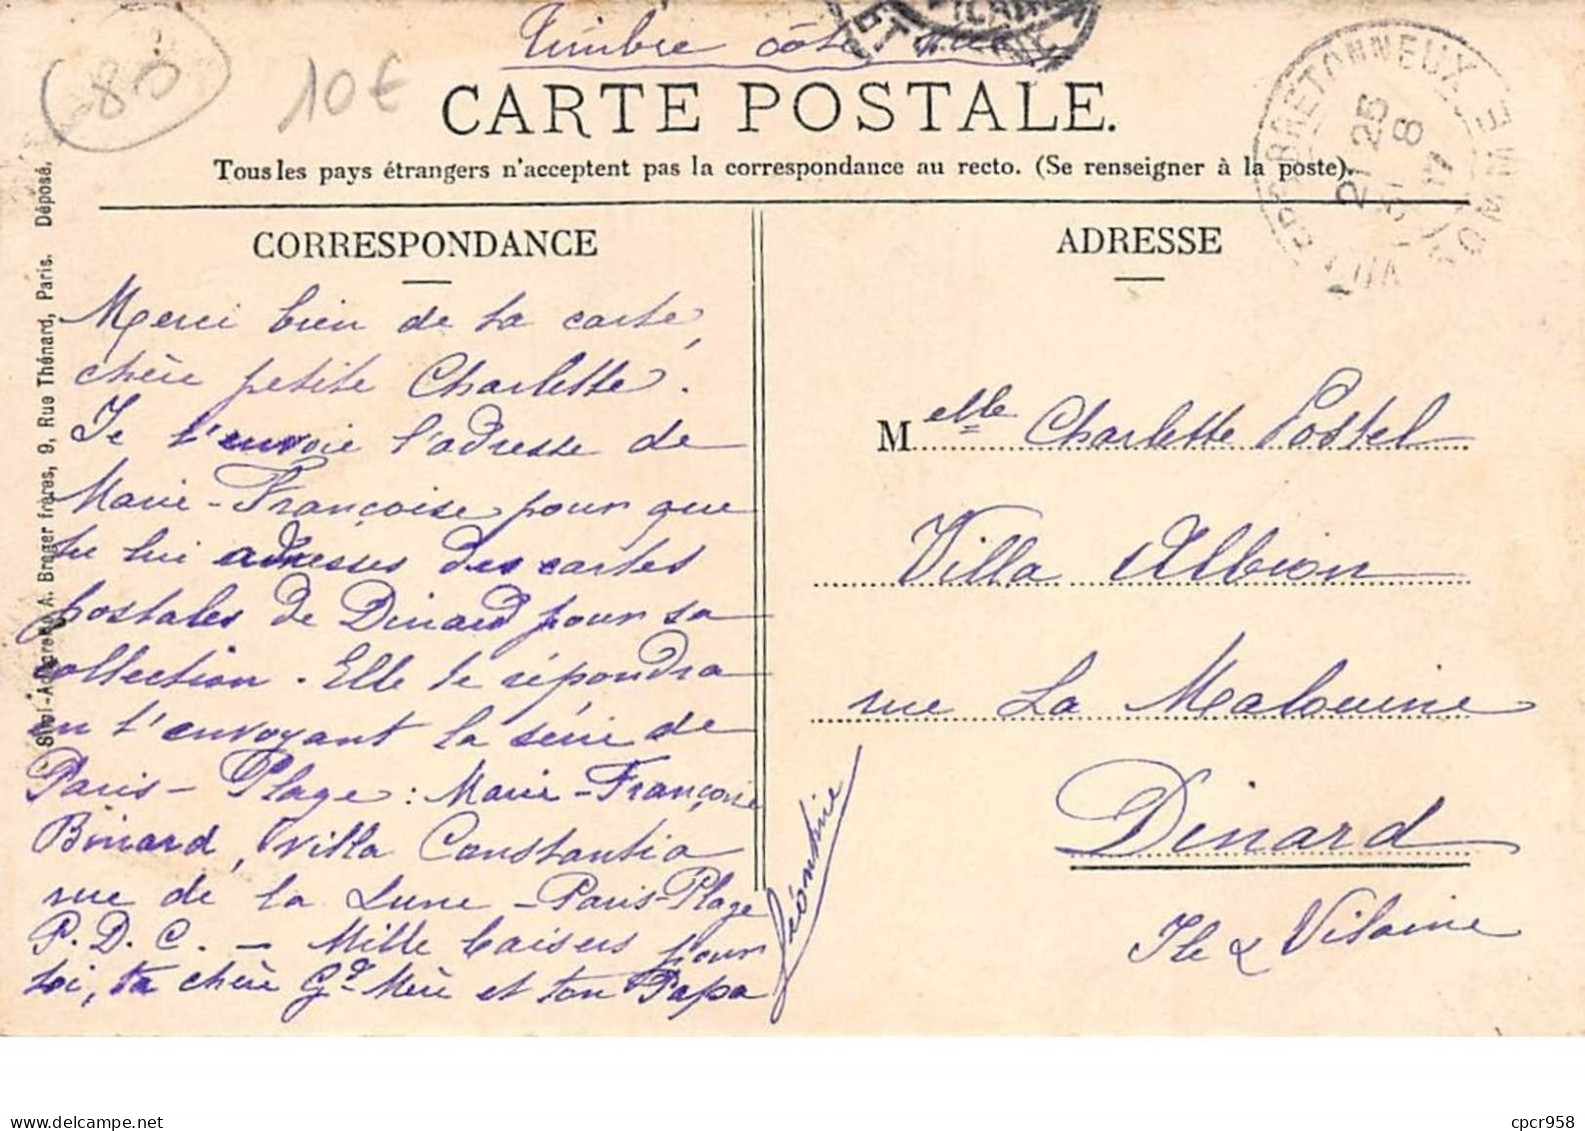 Timbre côté vue
80
10€
CARTE POSTALE.
Tous les pays étrangers n'acceptent pas la correspondance au recto. (Se renseigner à la poste).
VILLERS-BRETONNEUX SOMME
21 25
8
CORRESPONDANCE
Merci bien de ta carte,
chère petite Charlotte.
Je t'envoie l'adresse de
Marie-Françoise pour que
tu lui adresses des cartes
postales de Dinard pour sa
collection. Elle te répondra
en t'envoyant la série de
Paris-Plage : Marie-Françoise
Binard, Villa Constantia
rue de la Lune - Paris-Plage
P. D. C. - Mille baisers pour
toi, ta chère Gd Mère et ton Papa
Léontine
ADRESSE
Melle Charlotte Postel
Villa Albion
rue La Malouine
Dinard
Ile & Vilaine
A. Breger frères, 9, Rue Thénard, Paris. Déposé.
cpcr958